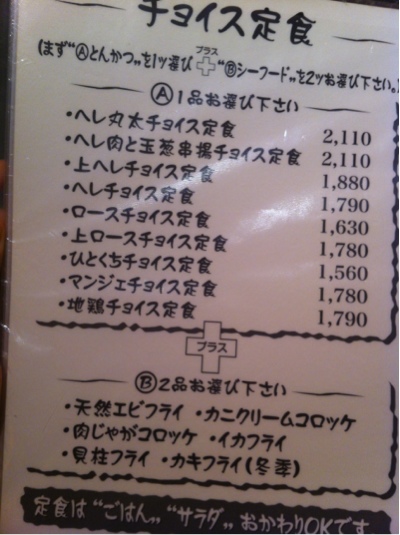 チョイス定食
(まず“Ⓐとんかつ„を1ッ選び プラス “Ⓑシーフード„を2ッお選び下さい。)
Ⓐ1品お選び下さい
・ヘレ丸太チョイス定食 2,110
・ヘレ肉と玉葱串揚チョイス定食 2,110
・上ヘレチョイス定食 1,880
・ヘレチョイス定食 1,790
・ロースチョイス定食 1,630
・上ロースチョイス定食 1,780
・ひとくちチョイス定食 1,560
・マンジェチョイス定食 1,780
・地鶏チョイス定食 1,790
プラス
Ⓑ2品お選び下さい
・天然エビフライ ・カニクリームコロッケ
・肉じゃがコロッケ ・イカフライ
・貝柱フライ ・カキフライ(冬季)
定食は“ごはん„“サラダ„おかわりOKです